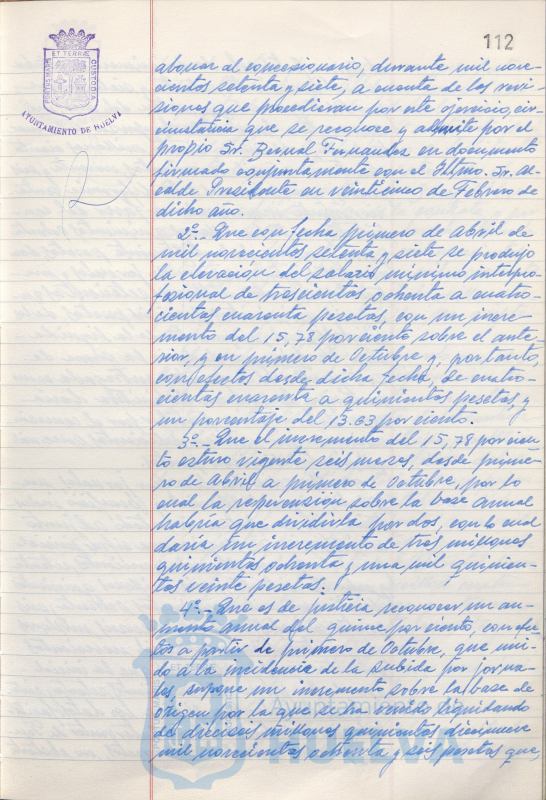 112
ET TERRAE
PORTUS MARIS
CUSTODIA
AYUNTAMIENTO DE HUELVA
abonar al concesionario, durante mil nove-
cientos setenta y siete, a cuenta de las revi-
siones que procedieran por este ejercicio, cir-
cunstancia que se reconoce y admite por el
propio Sr. Bernal Fernandez en documento
firmado conjuntamente con el Iltmo. Sr. Al-
calde Presidente en veinticinco de Febrero de
dicho año.
2º.- Que con fecha primero de Abril de
mil novecientos setenta y siete se produjo
la elevacion del salario minimo interpro-
fesional de trescientas ochenta a cuatro-
cientas cuarenta pesetas, con un incre-
mento del 15,78 por ciento sobre el ante-
rior, y en primero de Octubre y, por tanto,
con efectos desde dicha fecha, de cuatro-
cientas cuarenta a quinientas pesetas, y
un porcentaje del 13.63 por ciento.
3º.- Que el incremento del 15,78 por cien-
to estuvo vigente seis meses, desde prime-
ro de Abril a primero de Octubre, por lo
cual la repercusion sobre la base anual
habria que dividirla por dos, con lo cual
daria un incremento de tres millones
quinientas ochenta y una mil quinien-
tas veinte pesetas.
4º.- Que es de justicia reconocer un au-
mento anual del quince por ciento, con efec-
tos a partir de primero de Octubre, que uni-
do a la incidencia de la subida por jorna-
les, supone un incremento sobre la base de
origen por la que se ha venido liquidando
de dieciseis millones quinientas diecinueve
mil novecientas ochenta y seis pesetas que,
Ayuntamiento de
HUELVA